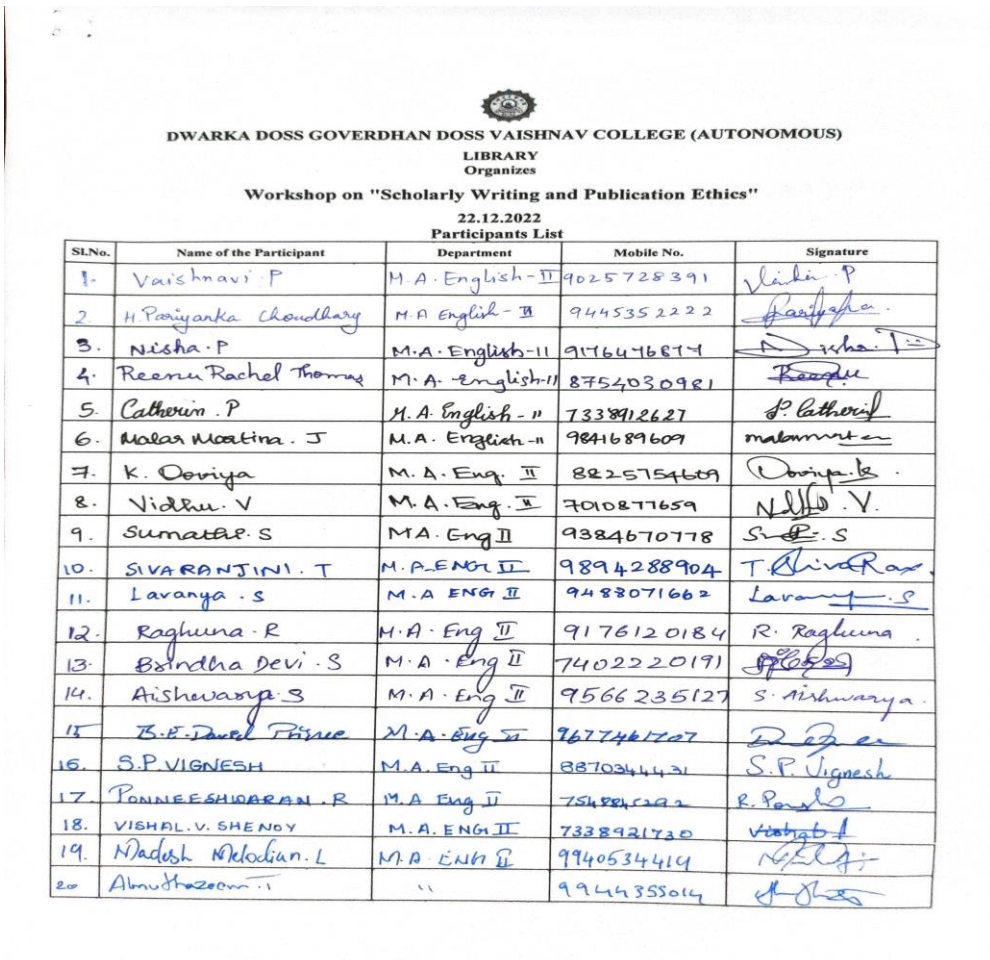 DWARKA DOSS GOVERDHAN DOSS VAISHNAV COLLEGE (AUTONOMOUS)
LIBRARY
Organizes
Workshop on "Scholarly Writing and Publication Ethics"
22.12.2022
Participants List
Sl.No. Name of the Participant Department Mobile No. Signature
1. Vaishnavi. P M.A. English - II 9025728391
2. H. Pariyanka Choudhary M.A English - II 9445352222
3. Nisha. P M.A. English - II Nisha.
4. Reenu Rachel Thomas M.A. English - II 8754030981
5. Catherin. P M.A. English - II 7338912627 P. Catherin
6. Malar Martina. J M.A. English - II 9841689609
7. K. Ooviya M.A. Eng. II 8825754609 Ooviya.k.
8. Vidhu. V M.A. Eng. II 7010877659
9. Sumathi. S MA. Eng II 9384670778
10. SIVARANJINI. T M.A ENG II 9894288904
11. Lavanya. S M.A ENG II 9483071662 Lavanya. S
12. Raghuna. R M.A. Eng II 9176120184 R. Raghuna.
13. Brindha Devi. S M.A. Eng II 7402220191
14. Aishwarya. S M.A. Eng II 9566235127 S. Aishwarya.
15 Prince M.A. Eng II
16. S.P. VIGNESH M.A. Eng II 8870344431 S.P. Vignesh
17. PONNEESHWARAN. R M.A Eng II
18. VISHAL. V. SHENOY M.A. ENG II 7338921730
19. Madesh Melodian. L M.A. ENG II 9940534414
20 " 9944355014